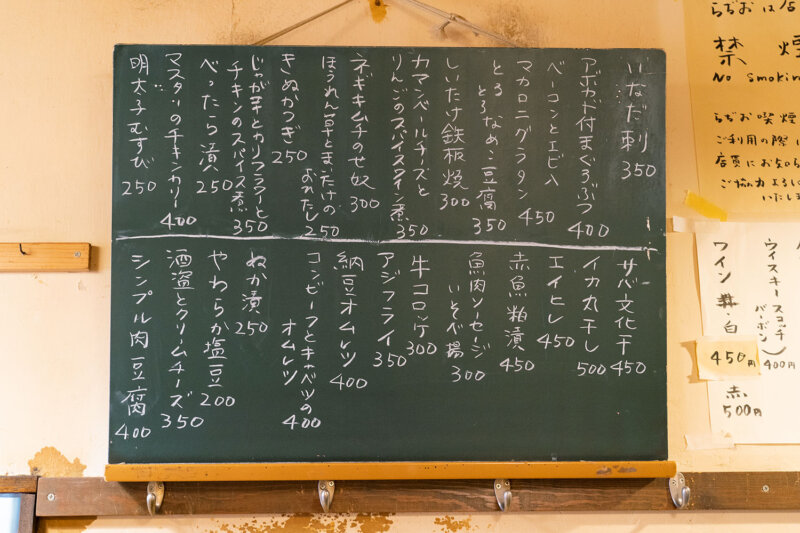 いなだ刺
350
アボカド付まぐろぶつ
400
ベーコンとエビ入
マカロニグラタン
450
とろとろなめこ豆腐
350
しいたけ鉄板焼
300
カマンベールチーズと
りんごのスパイスワイン煮
350
ネギキムチのせ奴
300
ほうれん草とまいたけの
おひたし
250
きぬかつぎ
250
じゃが芋とカリフラワーと
チキンのスパイス煮
350
べったら漬
250
マスタリのチキンカリー
400
明太子むすび
250
サバ文化干
450
イカ丸干し
500
エイヒレ
450
赤魚粕漬
450
魚肉ソーセージ
いそべ揚
300
牛コロッケ
300
アジフライ
350
納豆オムレツ
400
コンビーフとキャベツの
オムレツ
400
ぬか漬
250
やわらか塩豆
200
酒盗とクリームチーズ
350
シンプル肉豆腐
400
らぢおは店
禁煙
No smokin
らぢお喫煙
ご利用の際は
店員にお知ら
ご協力よろし
いたしま
ウイスキー スコッチ
バーボン
400円
ワイン 白
450円
赤
500円